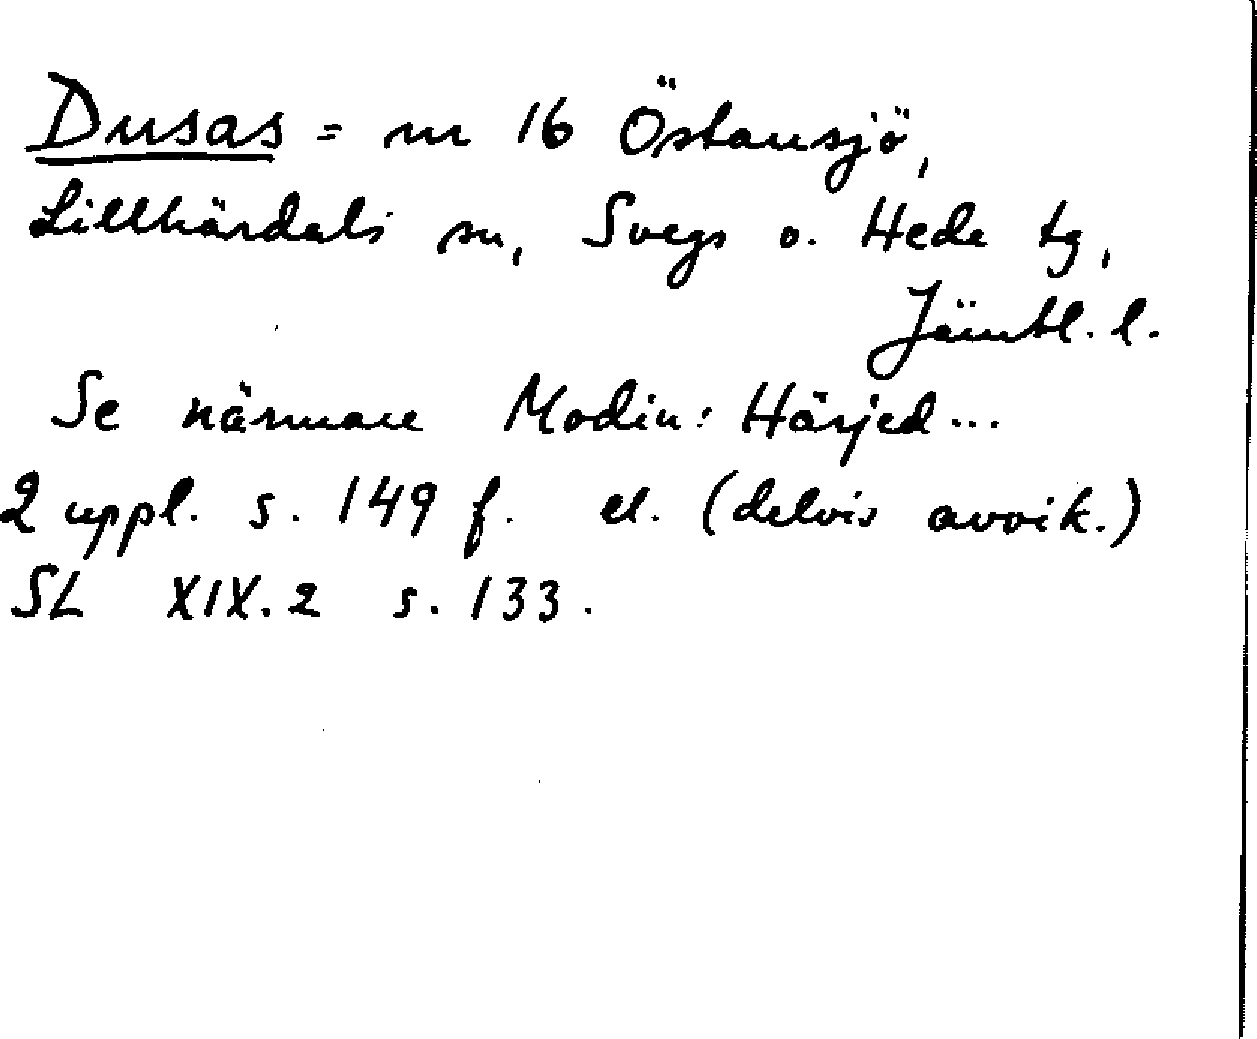 Dusas = nr 16 Östansjö,
Lillhärdals sn, Svegs o. Hede tg,
Jämtl. l.
Se närmare Modin: Härjed...
2 uppl. s. 149 f. el. (delvis avvik.)
SL XIX.2 s. 133.